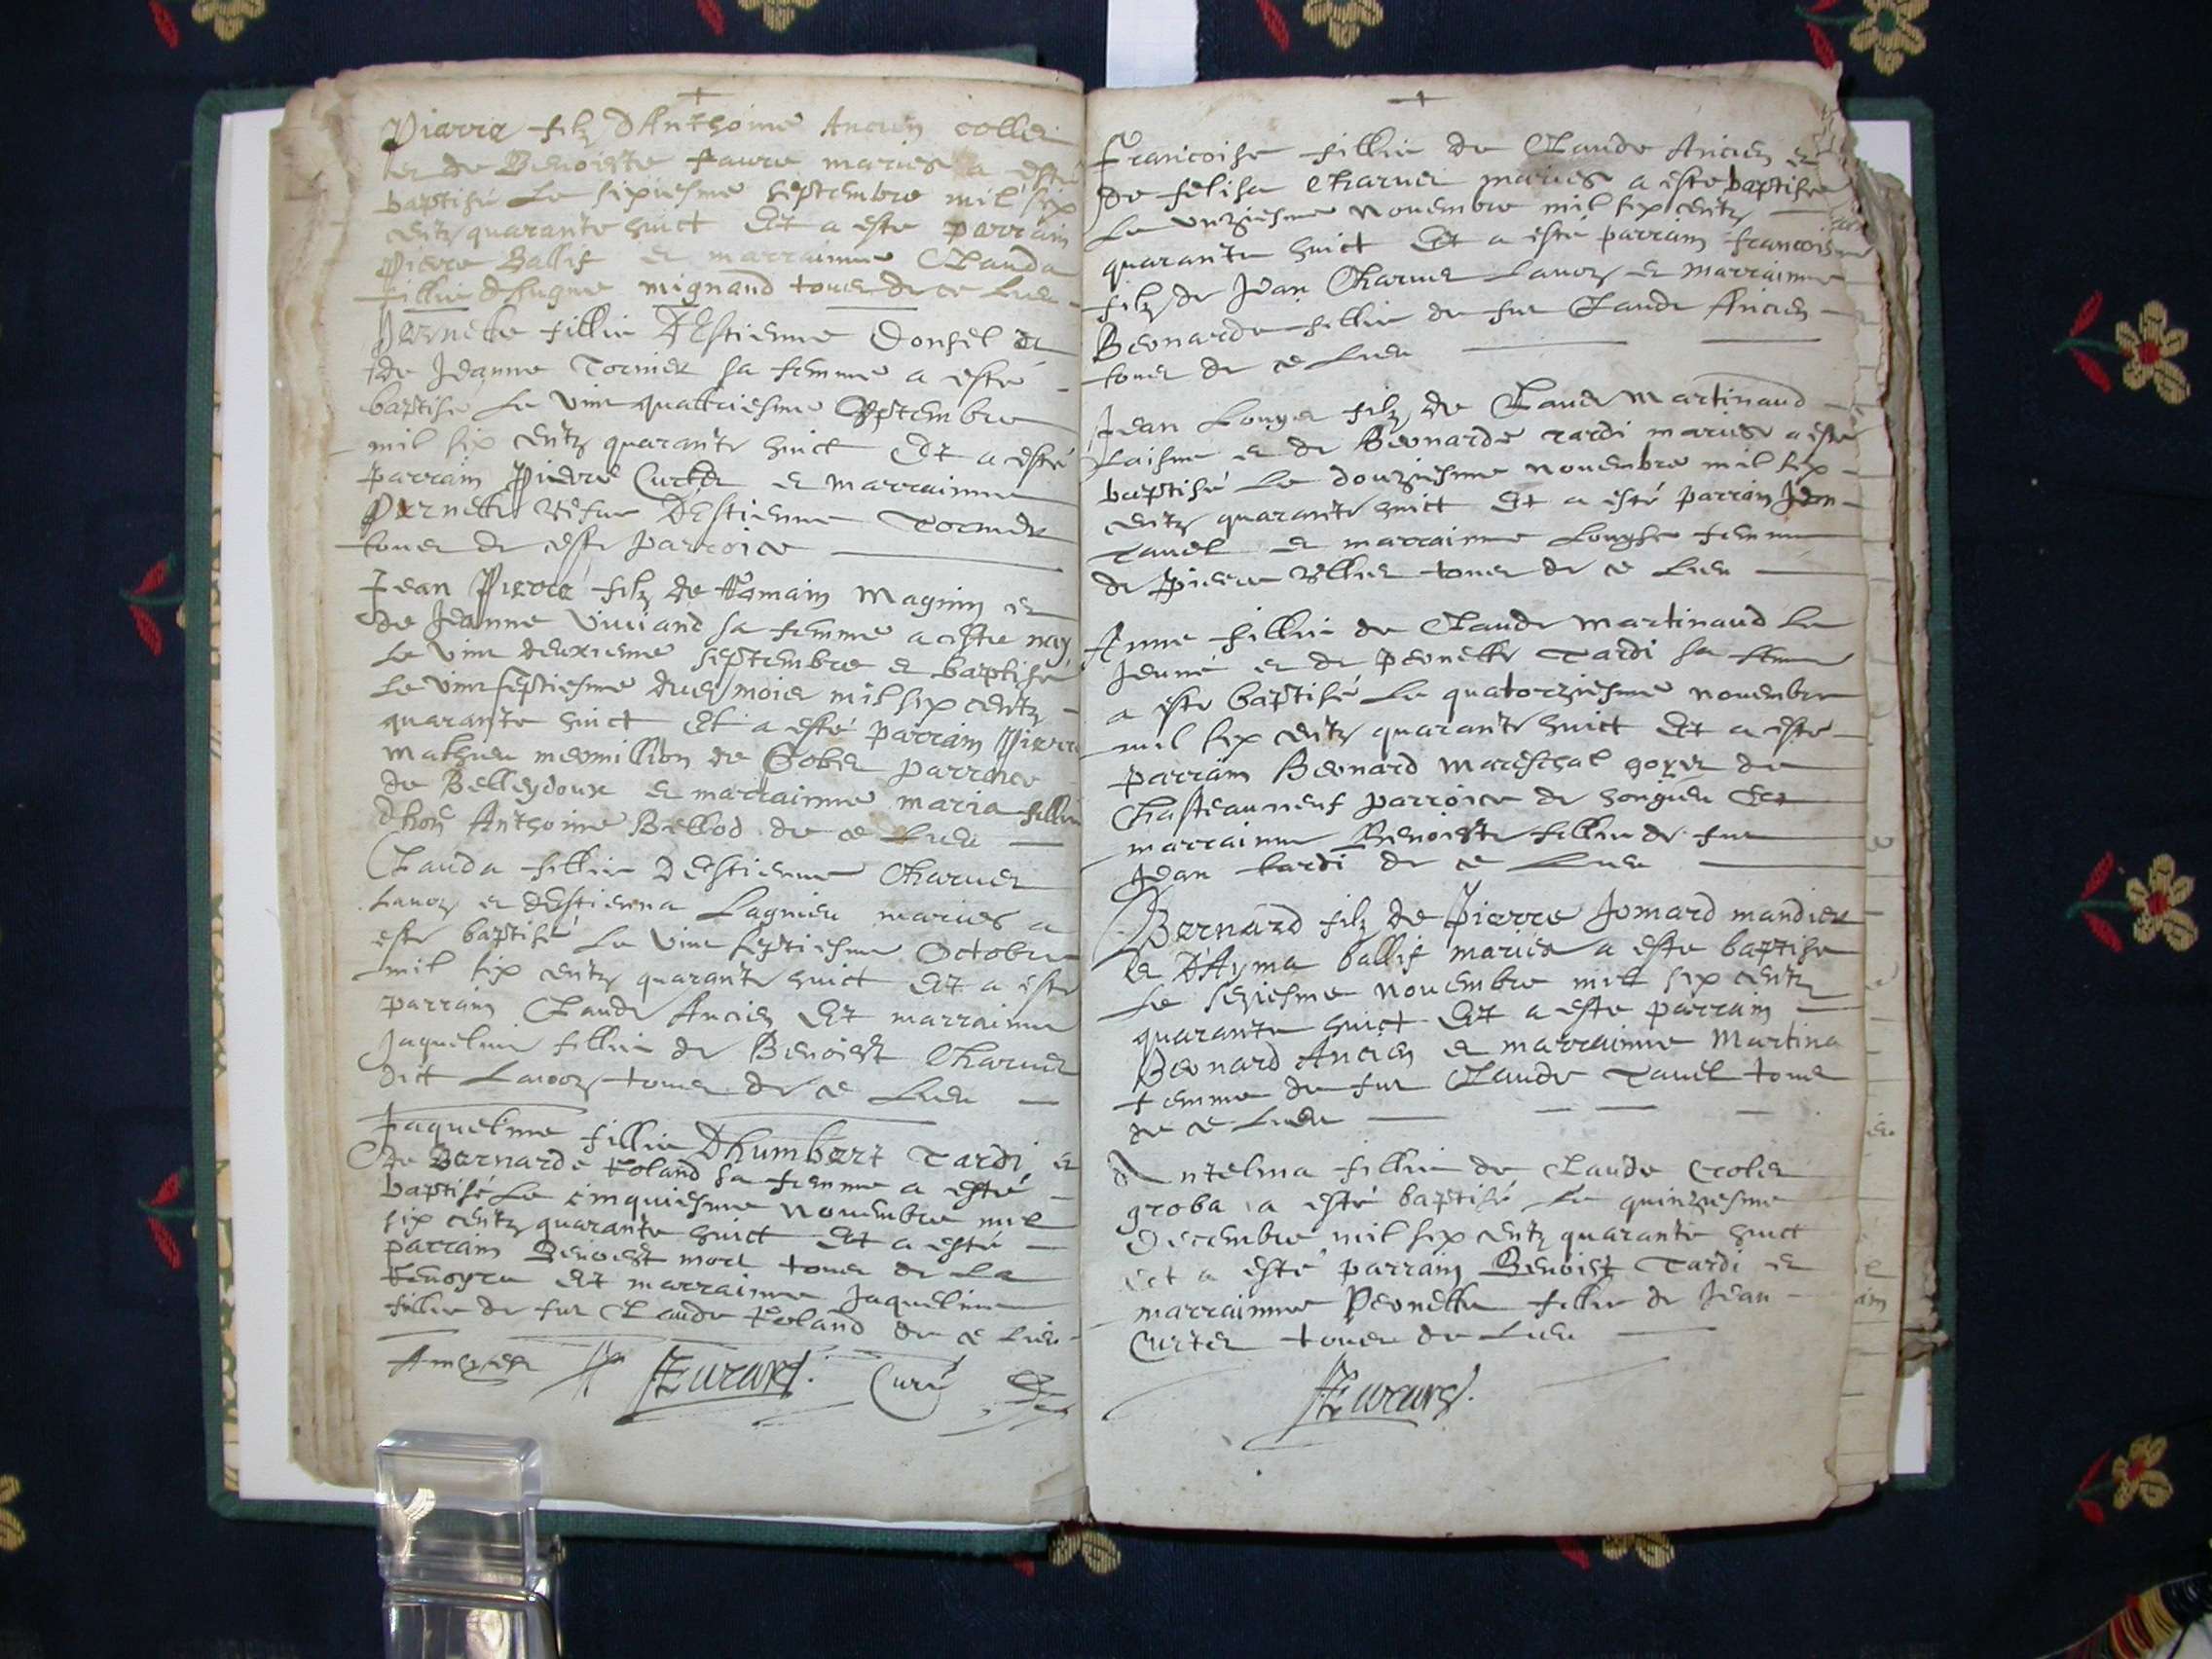 Pierre filz d'Anthoine Ancien collet
et de Benoiste Favre maries a esté
baptisé le sixiesme septembre mil six
centz quarante huict Et a este parrain
Pierre Ballif et marrainne Clauda
fillie d'hugue mignand tous de ce lieu
Pernette fillie d'Estienne Donsel et
de Jeanne Tornier sa femme a esté
baptisé le vint quattriesme septembre
mil six centz quarante huict Et a esté
parrain Pierre Curtet et marrainne
Pernette vefve d'Estienne Tornier
tous de ceste parroice
Jean Pierre filz de Romain Magnin et
de Jeanne Viviand sa femme a este nay
le vint deuxieme septembre et baptisé
le vint septiesme du mois mil six centz
quarante huict Et a esté parrain Pierre
Mathieu mermillion de Gobet parroice
de Belleydoux et marrainne maria fillie
d'hon Anthoine Bellod de ce lieu
Clauda fillie d'Estienne Charvet
Lavoz et d'Estienna Lagnieu maries a
este baptisé le vint septiesme Octobre
mil six centz quarante huict Et a este
parrain Claude Ancien Et marrainne
Jaqueline fillie de Benoist Charvet
dict Lavoz tous de ce lieu
Jaqueline fillie d'humbert Tardi et
de Bernarde Roland sa femme a esté
baptisé le cinquiesme novembre mil
six centz quarante huict Et a esté
parrain Benoist morel tous de la
Et marrainne Jaqueline
fillie de fut Claude Roland de ce lieu
Curé
Francoise fillie de Claude Ancien et
de felisa Charvet maries a este baptise
le unziesme novembre mil six centz
quarante huict Et a esté parrain francois
filz de Jean Charvet Lavoz et marrainne
Bernarde fillie de fut Claude Ancien
tous de ce lieu
Jean Louys filz de Claude Martinand
laisne et de Bernarde tardi maries a este
baptisé le douziesme novembre mil six
centz quarante huict Et a esté parrain Jean
Tavel et marrainne Louyse femme
de Pierre Vllier tous de ce lieu
Anne fillie de Claude Martinaud le
jeune et de pernette Tardi sa femme
a este baptisé le quatorziesme novembre
mil six centz quarante huict Et a esté
parrain Bernard Mareschal goyet de
Chasteauneuf parroice de songieu Et
marrainne Benoiste fillie de fut
Jean tardi de ce lieu
Bernard filz de Pierre Jomard mandier
et d'Ayma ballif maries a este baptise
le seziesme novembre mil six centz
quarante huict Et a este parrain
Bernard Ancien et marrainne Martina
femme de fut Claude Tavel tous
de ce lieu
Antelma fillie de Claude Crolet
groba a esté baptisé le quinziesme
Decembre mil six centz quarante huict
Et a esté parrain Benoist Tardi et
marrainne Pernette fillie de Jean
Curtet tous de lieu